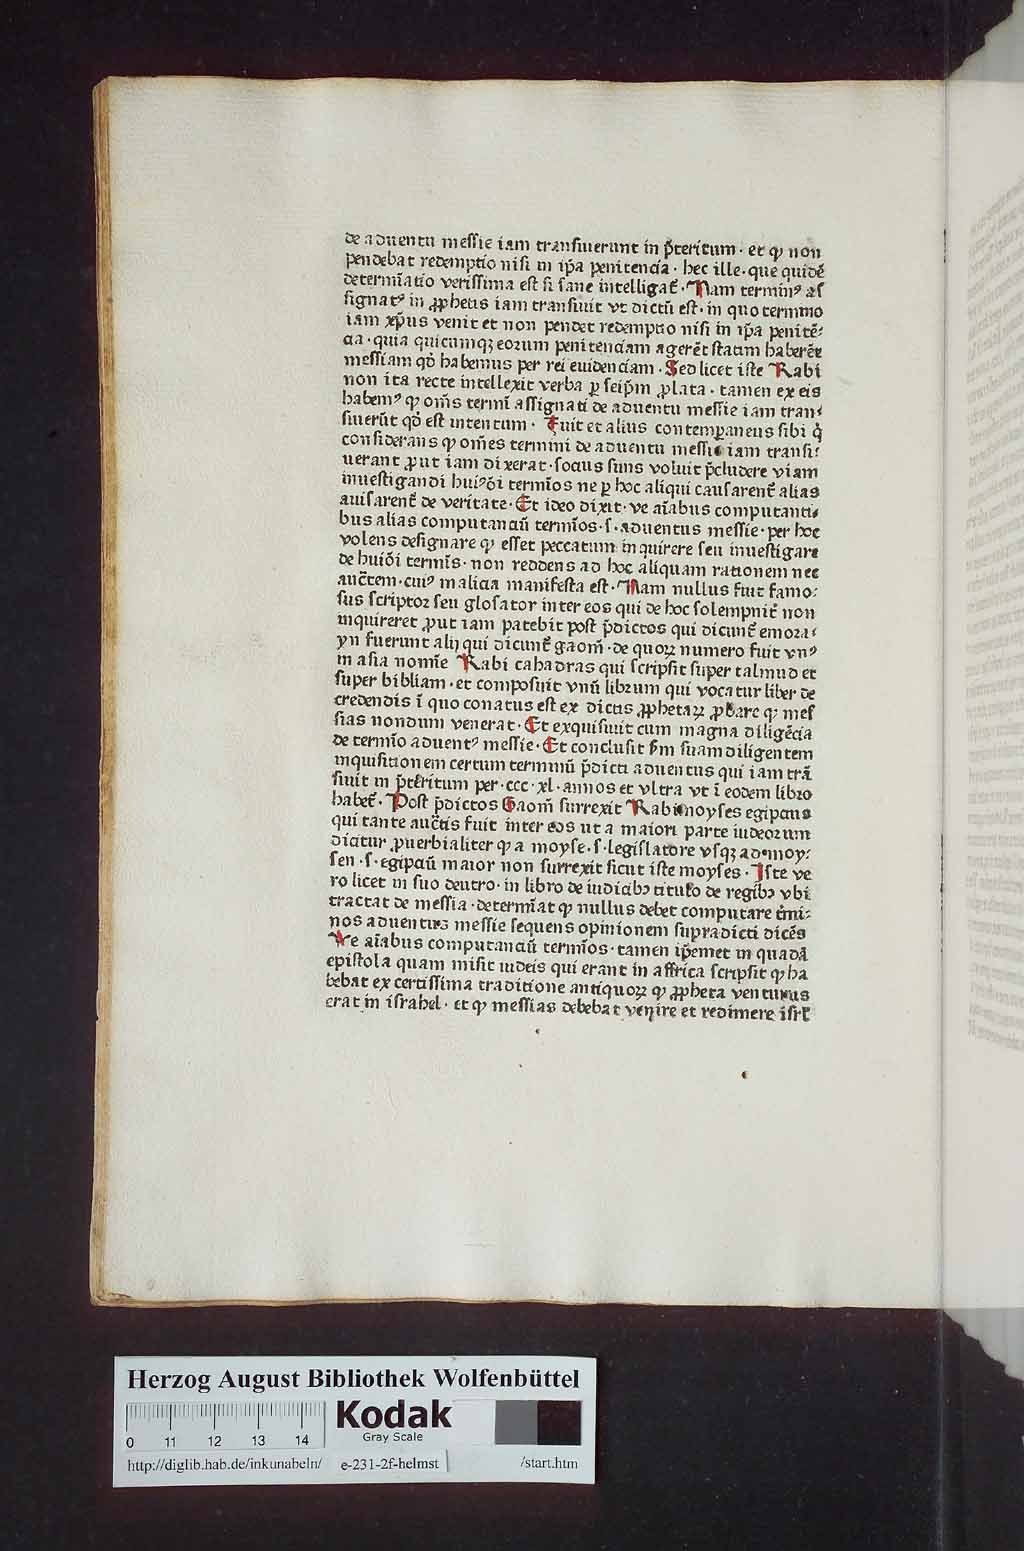 de aduentu messie iam transiuerunt in p̃teritum · et ꝙ non
pendebat redemptio nisi in ip̃a penitencia · hec ille · que quidē
determīatio verissima est si sane intelligat᷒ · Nam terminꝰ as
signatꝰ in ꝓphetis iam transiuit vt dictū est · in quo termino
iam xp̃us venit et non pendet redemptio nisi in ip̃a penitē⸗
cia · quia quicumqꝫ eorum penitenciam agerēt statim haberēt
messiam qđ habemus per rei euidenciam · Sed licet iste Rabi
non ita recte intellexit verba ꝑ seip̃m ꝓlata · tamen ex eis
habemꝰ ꝙ om̄s termī assignati de aduentu messie iam tran⸗
siuerūt qđ est intentum · Fuit et alius contempaneus sibi q̇
considerans ꝙ om̄es termini de aduentu messie iam transi⸗
uerant ꝓut iam dixerat · socius suus voluit p̃cludere viam
inuestigandi huiꝰōi termīos ne ꝑ hoc aliqui causarent᷒ alias
auisarent᷒ de veritate · Et ideo dixit · ve aīabus computanti⸗
bus alias computanciū termīos · s · aduentus messie · per hoc
volens designare ꝙ esset peccatum inquirere seu inuestigare
de huiōi termīs · non reddens ad hoc aliquam rationem nec
auct̄em · cuiꝰ malicia manifesta est · Nam nullus fuit famo⸗
sus scriptor seu glosator inter eos qui de hoc solempnit᷒ non
inquireret ꝓut iam patebit post p̃dictos qui dicunt᷒ emora⸗
yn fuerunt alij qui dicunt᷒ gaom̄ · de quoꝝ numero fuit vnꝰ
in asia nomīe Rabi cahadras qui scripsit super talmud et
super bibliam · et composuit vnū librum qui vocatur liber de
credendis ī quo conatus est ex dictis ꝓphetaꝝ ꝓbare ꝙ mes
sias nondum venerat · Et exquisiuit cum magna diligēcia
de termīo aduentꝰ messie · Et conclusit s̄m suam diligentem
inquisitionem certum terminū p̃dicti aduentus qui iam trā
siuit in p̃teritum per · ccc · xl · annos et vltra vt ī eodem libro
habet᷒ · Post p̃dictos Gaom̄ surrexit Rabi moyses egipcius
qui tante auct̄is fuit inter eos ut a maiori parte iudeorum
dicitur ꝓuerbialiter ꝙ a moyse · s · legislatore vsqꝫ ad moy⸗
sen · s · egipciū maior non surrexit sicut iste moyses · Iste ve
ro licet in suo deutro · in libro de iudicibꝫ titulo de regibꝫ vbi
tractat de messia · determīat ꝙ nullus debet computare t᷒mi⸗
nos aduentus messie sequens opinionem supradicti dicēs
Ve aīabus computanciū termīos · tamen ip̃emet in quadā
epistola quam misit iudeis qui erant in affrica scripsit ꝙ ha
bebat ex certissima traditione antiquoꝝ ꝙ ꝓpheta venturus
erat in israhel · et ꝙ messias debebat venire et redimere isrł
Herzog August Bibliothek Wolfenbüttel
0 11 12 13 14
Kodak
Gray Scale
http://diglib.hab.de/inkunabeln/ e-231-2f-helmst /start.htm